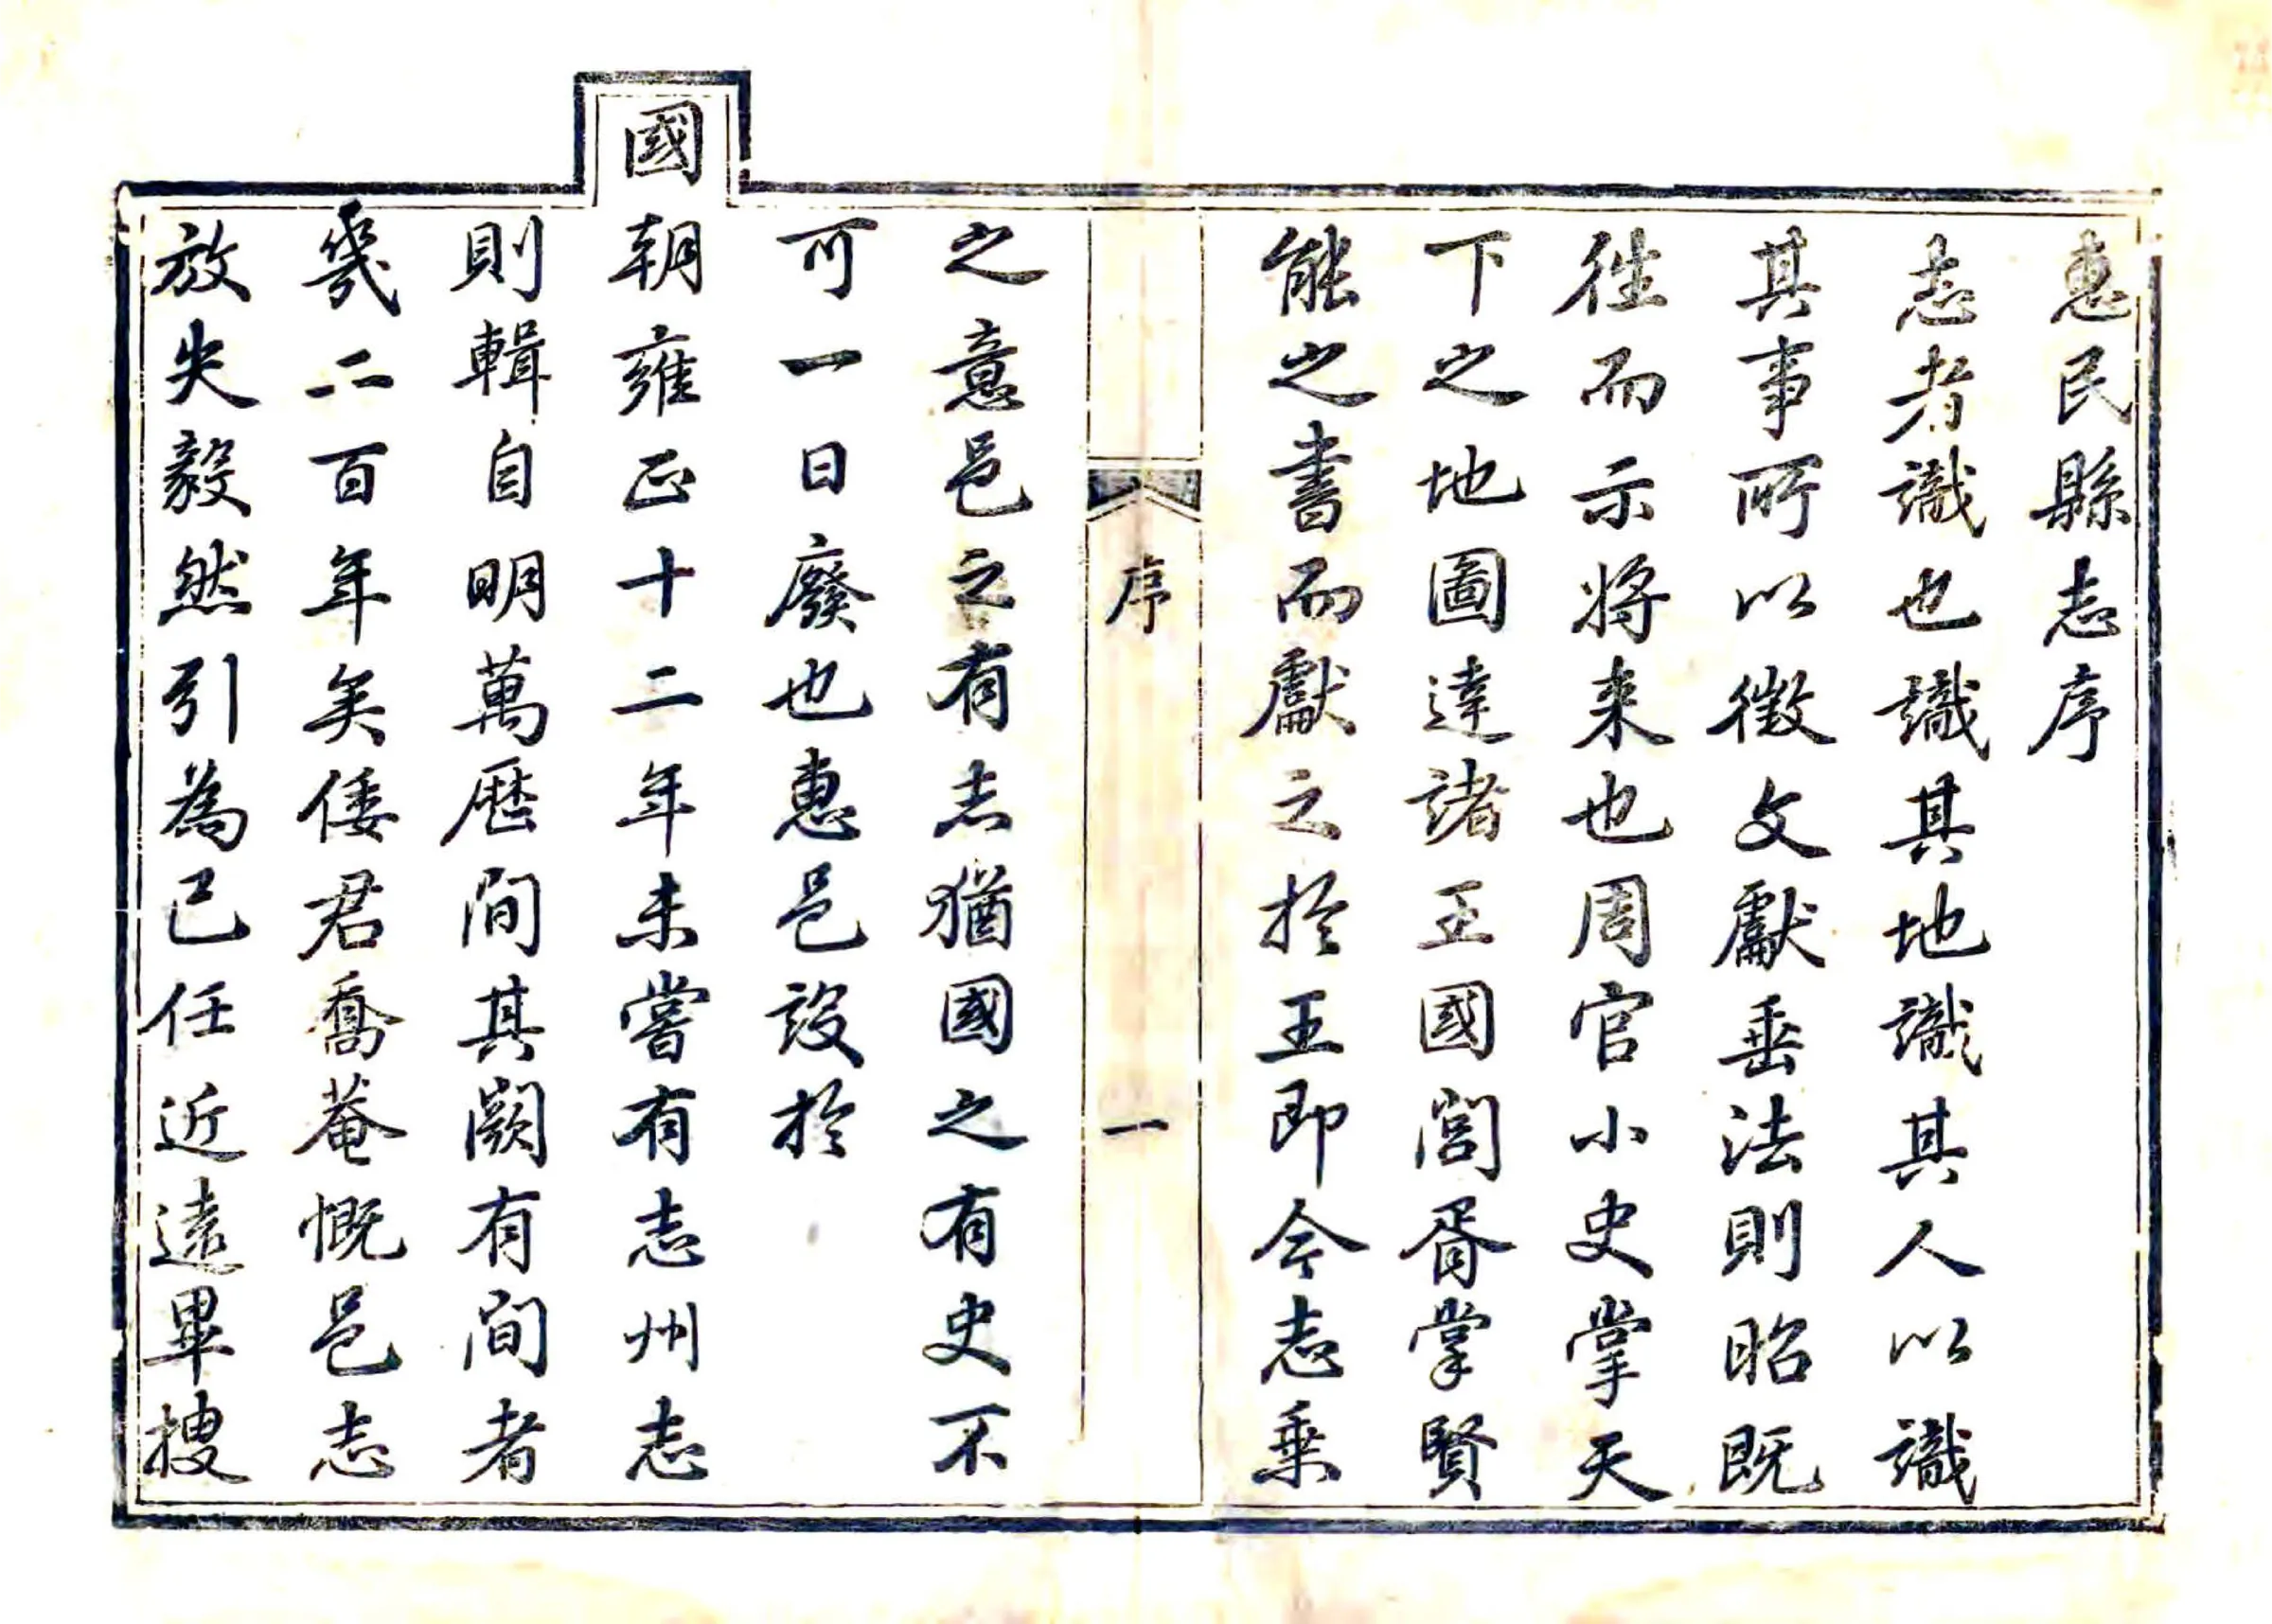 惠民縣志序
志者識也識其地識其人以識
其事所以徴文獻垂法則昭既
徃而示將来也周官小史掌天
下之地圖達諸王國閭胥掌賢
能之書而獻之於王即今志乗
序
一
之意邑之有志猶國之有史不
可一日廢也惠邑設於
國朝雍正十二年未嘗有志州志
則輯自明萬厯間其闕有間者
幾二百年矣倭君喬菴慨邑志
放失毅然引為己任近遠畢搜